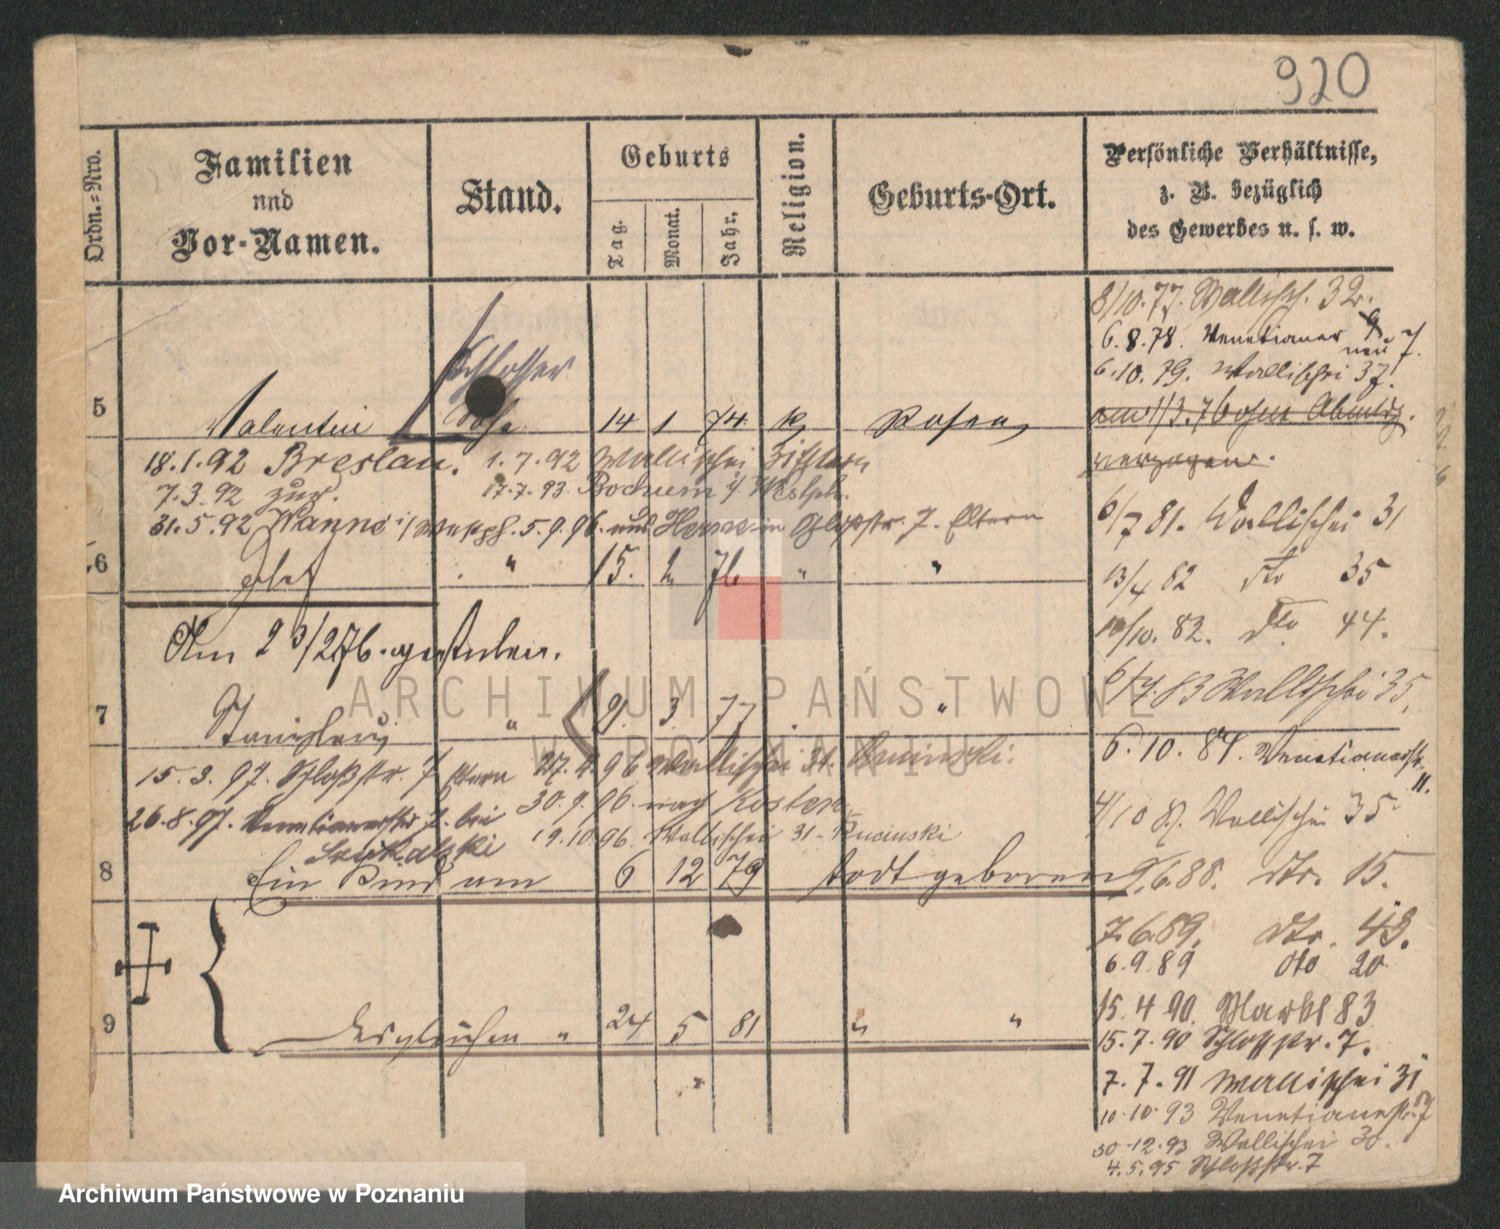 920
Ordn.-Nro.
Familien
und
Vor-Namen.
Stand.
Geburts
Tag.
Monat.
Jahr.
Religion.
Geburts-Ort.
Persönliche Verhältnisse,
z. B. bezüglich
des Gewerbes u. s. w.
8/10.77. Wallisch. 32.
6.8.78. Venetianer 9
neu 7.
6.10.79. Wallischei 37.
Schlosser
5 Valentin Sohn 14 1 74 k Posen
verzogen.
18.1.92 Breslau. 1.7.92 Wallischei 31 Eltern
7.3.92 zur. 17.7.93 Bochum i/ Westph.
31.5.92 Wanne i/ Westph. 5.9.96. und Herne in Schloßstr. 7. Eltern
6/7 81. Wallischei 31
6 " 15. 2 76 " "
13/4 82 dto 35
10/10. 82. dto 44.
Am 23/2 76. gestorben.
6/4.83 Wallischei 35.
7 Stanislaus " 9. 3. 77 "
6.10.84. Venetianerstr.
11.
15.3.97. Schloßstr. 7 Eltern 27.4.96 Wallischei 31.
30.9.96. nach Kosten
4/10 87. Wallischei 35
26.8.97. Venetianerstr 7. bei
19.10.96. Wallischei 31 - Rucinski
8 Ein Kind am 6 12 79 todt geboren
9.6.88. dto. 15.
7.6.89. dto. 43.
6.9.89 dto 20
15.4.90. Markt 83
9 Desgleichen " 24 5 81 " "
15.7.90 Schloßstr. 7.
7.7.91 Wallischei 31
10.10.93 Venetianerstr. 7
30.12.93 Wallischei 30.
4.5.95 Schloßstr. 7
ARCHIWUM PAŃSTWOWE
W POZNANIU
Archiwum Państwowe w Poznaniu